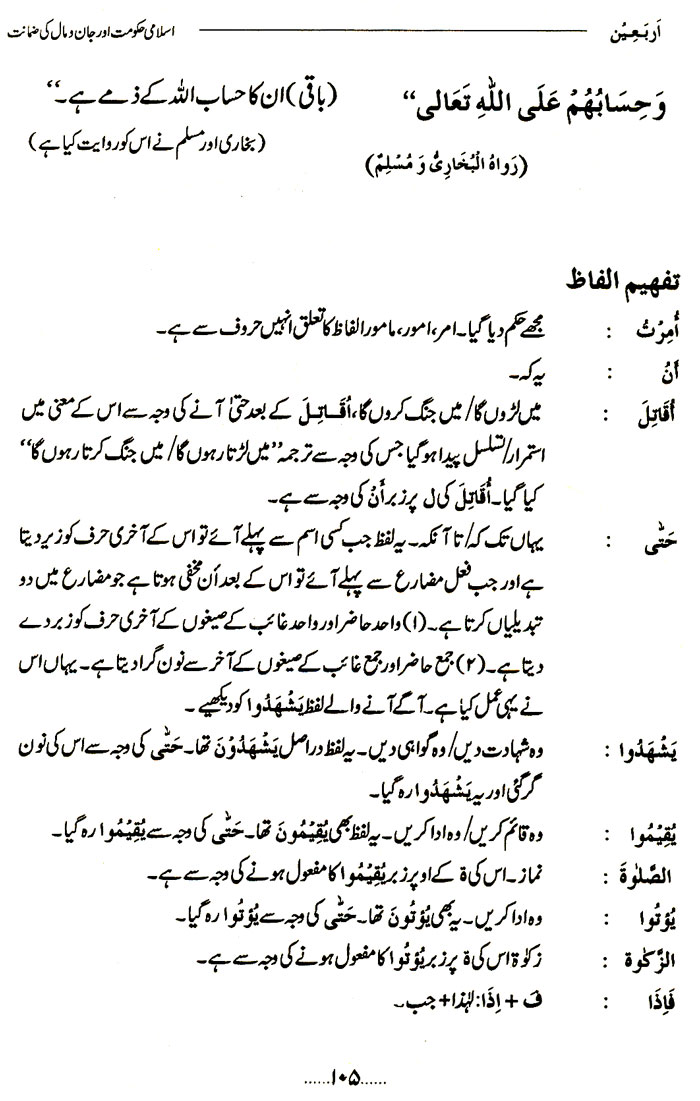 اَربَعِیْن اسلامی حکومت اور جان و مال کی ضمانت
وَحِسَابُهُمْ عَلَى اللّٰهِ تَعَالى“ (باقی) ان کا حساب اللہ کے ذمے ہے۔“
(رَوَاهُ الْبُخَارِىُّ وَ مُسْلِمٌ) (بخاری اور مسلم نے اس کو روایت کیا ہے)
تفہیم الفاظ
أُمِرْتُ : مجھے حکم دیا گیا۔ امر، امور، مامور الفاظ کا تعلق انہیں حروف سے ہے۔
أَنْ : یہ کہ۔
أُقَاتِلَ : میں لڑوں گا/ میں جنگ کروں گا، اُقَاتِلَ کے بعد حتیٰ آنے کی وجہ سے اس کے معنی میں
استمرار/تسلسل پیدا ہوگیا جس کی وجہ سے ترجمہ ”میں لڑتا رہوں گا/ میں جنگ کرتا رہوں گا“
کیا گیا۔ اُقَاتِلَ کی ل پر زبر أَنْ کی وجہ سے ہے۔
حَتّٰى : یہاں تک کہ/ تا آنکہ۔ یہ لفظ جب کسی اسم سے پہلے آئے تو اس کے آخری حرف کو زیر دیتا
ہے اور جب فعل مضارع سے پہلے آئے تو اس کے بعد أن مخفی ہوتا ہے جو مضارع میں دو
تبدیلیاں کرتا ہے۔ (۱) واحد حاضر اور واحد غائب کے صیغوں کے آخری حرف کو زبر دے
دیتا ہے۔ (۲) جمع حاضر اور جمع غائب کے صیغوں کے آخر سے نون گرا دیتا ہے۔ یہاں اس
نے یہی عمل کیا ہے۔ آگے آنے والے لفظ یَشْهَدُوا کو دیکھیے۔
يَشْهَدُوا : وہ شہادت دیں/ وہ گواہی دیں۔ یہ لفظ دراصل یَشْهَدُوْنَ تھا۔ حَتّٰى کی وجہ سے اس کی نون
گر گئی اور یہ یَشْهَدُوا رہ گیا۔
يُقِيْمُوا : وہ قائم کریں/ وہ ادا کریں۔ یہ لفظ بھی یُقِیْمُونَ تھا۔ حَتّٰى کی وجہ سے یُقِیْمُوا رہ گیا۔
الصَّلٰوةَ : نماز۔ اس کی ة کے اوپر زبر یُقِیْمُوا کا مفعول ہونے کی وجہ سے ہے۔
يُؤْتُوا : وہ ادا کریں۔ یہ بھی یُؤْتُونَ تھا۔ حَتّٰى کی وجہ سے یُؤْتُوا رہ گیا۔
الزَّكٰوة : زکوٰة اس کی ة پر زبر یُؤْتُوا کا مفعول ہونے کی وجہ سے ہے۔
فَاِذَا : فَ + اِذَا: لہٰذا + جب۔
......۱۰۵......